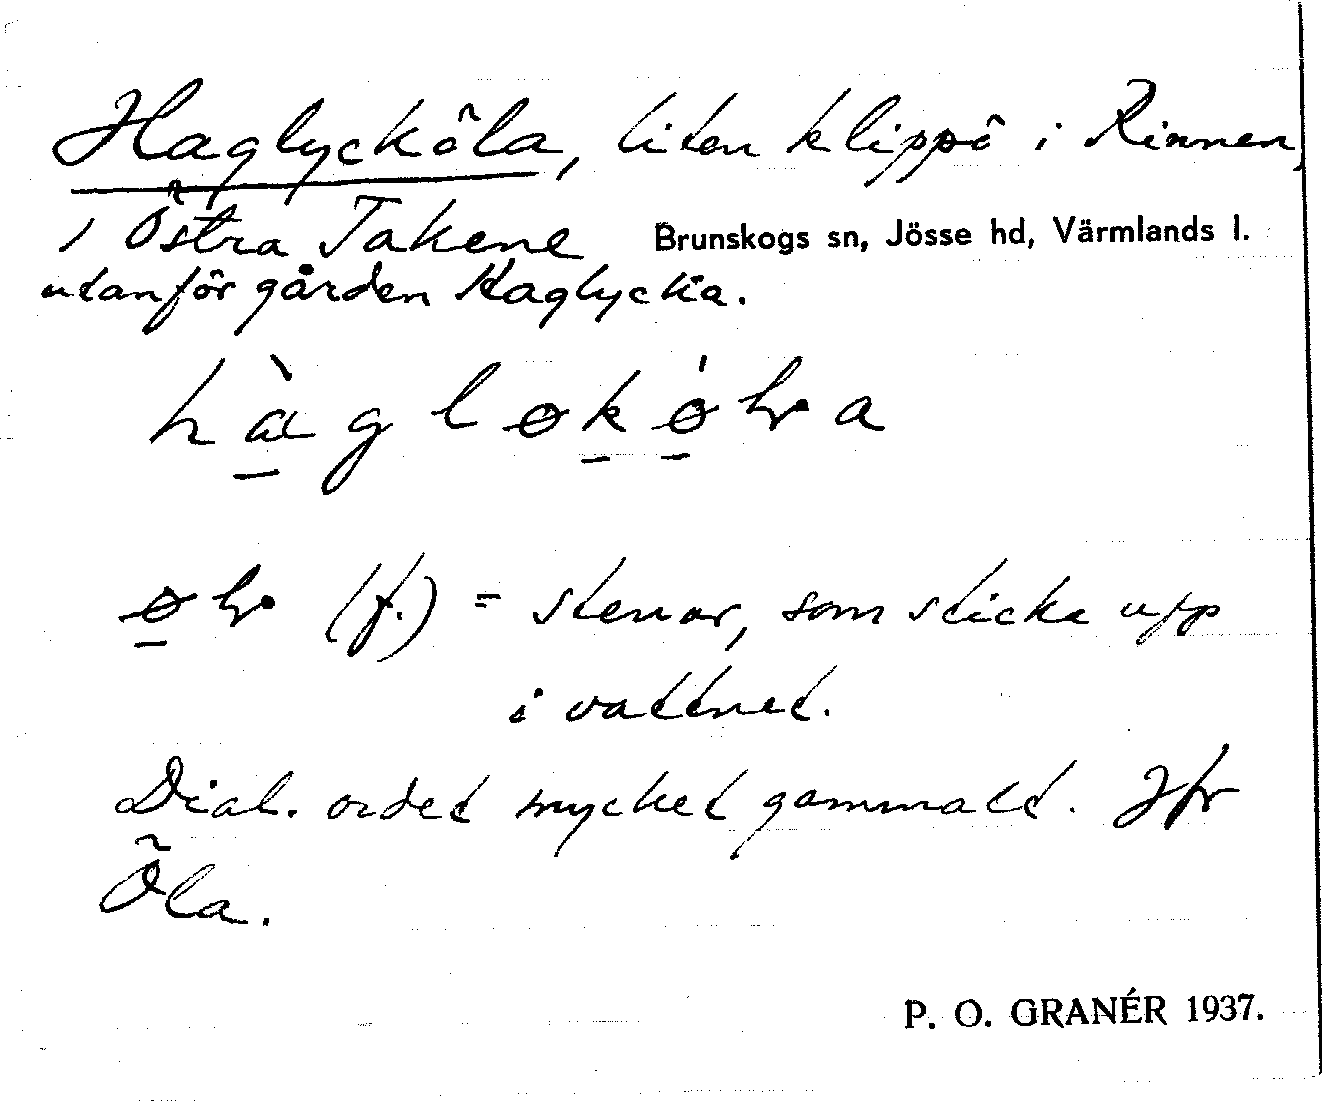 Haglycköla, liten klippö i Rinnen,
i Östra Takene Brunskogs sn, Jösse hd, Värmlands l.
utanför gården Haglycka.
(f.) = stenar, som sticka upp
i vattnet.
Dial. ordet mycket gammalt. Jfr
Öla.
P. O. GRANÉR 1937.